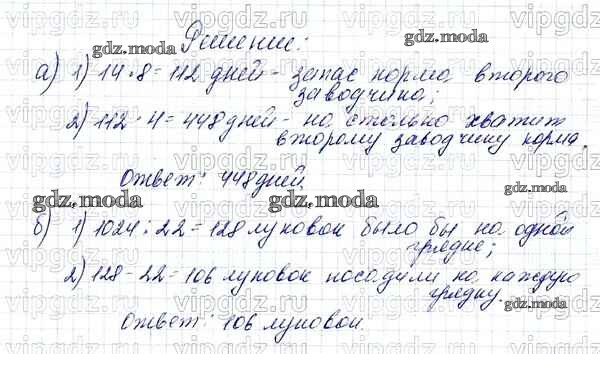 Решение:
а) 1) 14·8=112 дней - запас корма второго
заводчика;
2) 112·4=448 дней - на столько хватит
второму заводчику корма.
Ответ: 448 дней.
б) 1) 1024:22=128 луковок было бы на одной
грядке;
2) 128-22=106 луковок посадили на каждую
грядку.
Ответ: 106 луковок.
gdz.moda
gdz.moda
gdz.moda
gdz.moda
gdz.moda
gdz.moda
gdz.moda
gdz.moda
vipgdz.ru